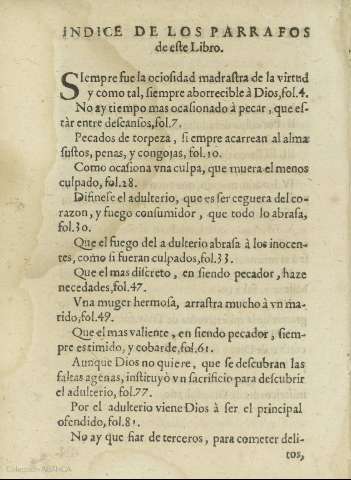 INDICE DE LOS PARRAFOS
de este Libro.
SIempre fue la ociosidad madrastra de la virtud
y como tal, siempre aborrecible à Dios, fol. 4.
No ay tiempo mas ocasionado à pecar, que es-
tàr entre descansos, fol. 7.
Pecados de torpeza, si empre acarrean al alma
sustos, penas, y congojas, fol. 10.
Como ocasiona vna culpa, que muera el menos
culpado, fol. 28.
Difinese el adulterio, que es ser ceguera del co-
razon, y fuego consumidor, que todo lo abrasa,
fol. 30.
Que el fuego del a dulterio abrasa à los inocen-
tes, como si fueran culpados, fol. 33.
Que el mas discreto, en siendo pecador, haze
necedades, fol. 47.
Vna muger hermosa, arrastra mucho à vn ma-
rido, fol. 49.
Que el mas valiente, en siendo pecador, siem-
pre es timido, y cobarde, fol. 61.
Aunque Dios no quiere, que se descubran las
faltas agenas, instituyò vn sacrificio para descubrir
el adulterio, fol. 77.
Por el adulterio viene Dios à ser el principal
ofendido, fol. 81.
No ay que fiar de terceros, para cometer deli-
tos,
Colección ABANCA